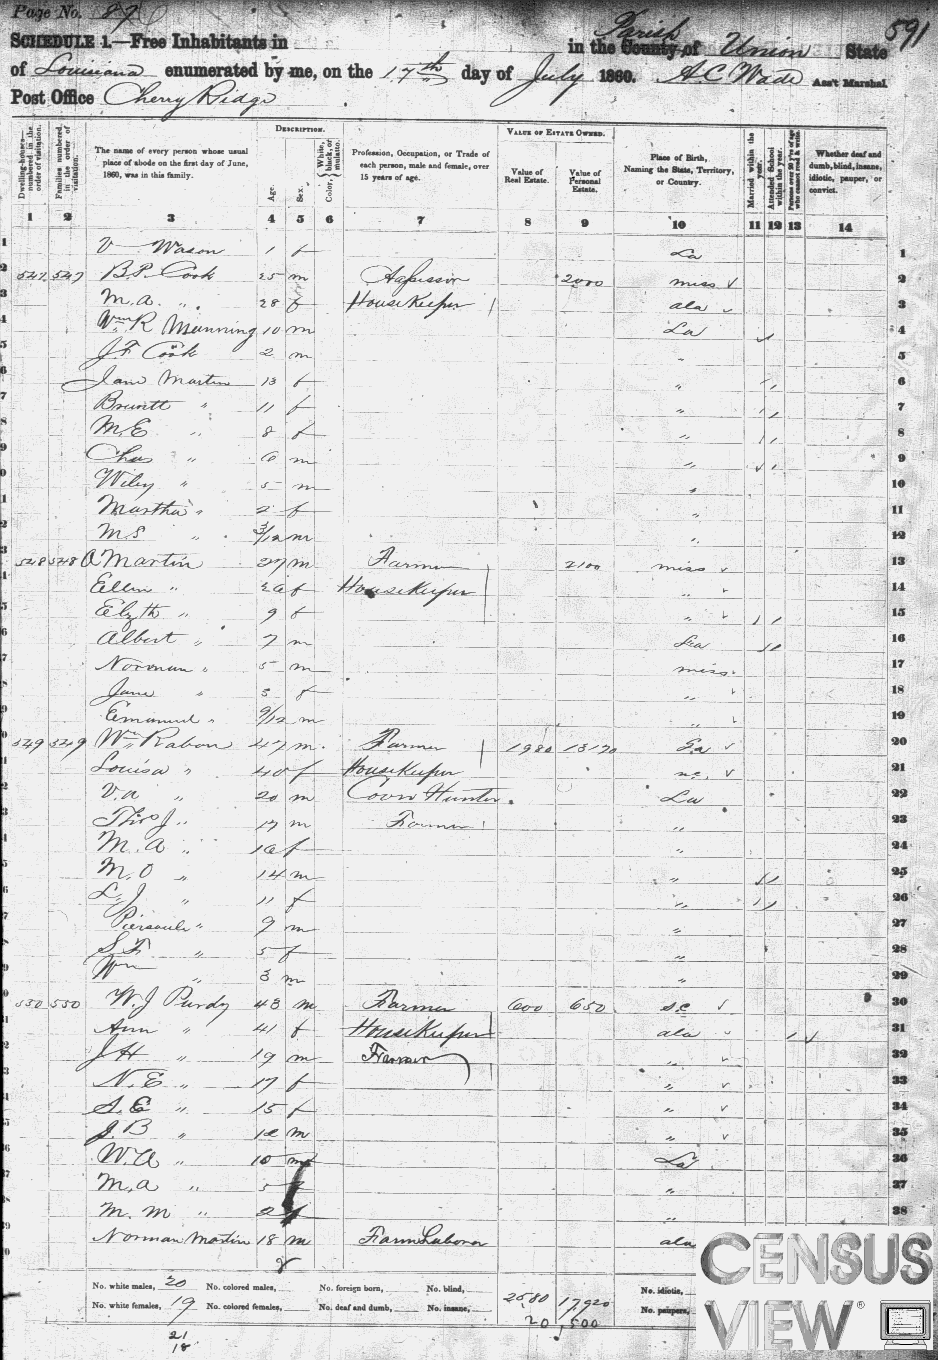 Page No. 87
591
SCHEDULE 1.—Free Inhabitants in in the County of Parish Union State
of Louisiana enumerated by me, on the 17th day of July 1860. A C Wade Ass't Marshal.
Post Office Cherry Ridge
DESCRIPTION. VALUE OF ESTATE OWNED.
Dwelling-houses—numbered in the order of visitation. Families numbered in the order of visitation. The name of every person whose usual place of abode on the first day of June, 1860, was in this family. Age. Sex. Color, {White, black, or mulatto. Profession, Occupation, or Trade of each person, male and female, over 15 years of age. Value of Real Estate. Value of Personal Estate. Place of Birth, Naming the State, Territory, or Country. Married within the year. Attended School within the year. Persons over 20 y'rs of age who cannot read & write. Whether deaf and dumb, blind, insane, idiotic, pauper, or convict.
1 2 3 4 5 6 7 8 9 10 11 12 13 14
1 V Wason 1 f La 1
2 547 547 B.P. Cook m 2000 miss 2
3 M.A. " 28 f HouseKeeper ala 3
4 Wm R Manning 10 m La 4
5 J F Cook 2 m " 5
6 Jane Martin 13 f " 6
7 " 11 f " 7
8 M.E. " 8 f " 8
9 Chas " 6 m " 9
10 Wiley " 5 m " 10
11 Martha " 2 f " 11
12 M.S. " 3/12 m " 12
13 548 548 A Martin 27 m Farmer 2100 miss 13
14 Ellen " 26 f HouseKeeper " 14
15 Elizth " 9 f " 15
16 Albert " 7 m La 16
17 Norman " 5 m miss 17
18 Jane " 3 f " 18
19 Emanuel " 9/12 m " 19
20 549 549 Wm Rabon 47 m Farmer 1980 13170 Ga 20
21 Louisa " 40 f HouseKeeper nc. 21
22 V.A " 20 m Coon Hunter La 22
23 Thos J " 17 m Farmer " 23
24 M. A " 16 f " 24
25 M. O " 14 m " 25
26 L. J " 11 f " 26
27 " 9 m " 27
28 S. F " 5 f " 28
29 Wm " 3 m " 29
30 550 550 W. J Purdy 43 m Farmer 600 650 S.C 30
31 Ann " 41 f HouseKeeper ala 31
32 J H " 19 m Farmer " 32
33 N. E " 17 f " 33
34 S. E " 15 f " 34
35 J. B " 12 m " 35
36 W. A " 10 m La 36
37 M, a " 5 f " 37
38 M. m " 2 f " 38
Norman Martin 18 m Farm Laborer ala
No. white males, 20 No. colored males, No. foreign born, No. blind, 2580 17,920 No. idiotic,
No. white females, 19 No. colored females, No. deaf and dumb, No. insane, No. paupers,
20,500
21
18
CENSUS
VIEW®